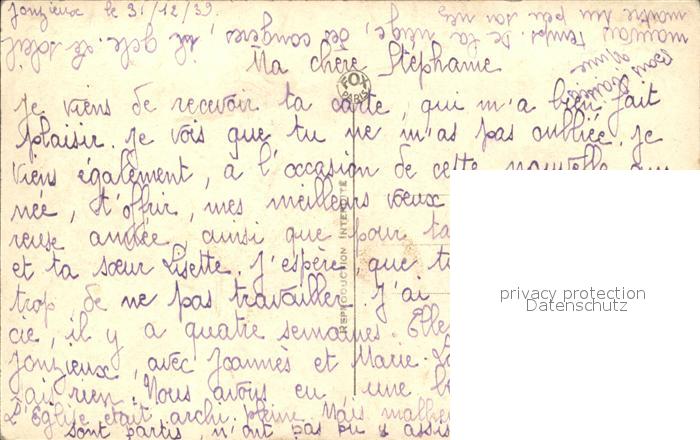 Jonzieux le 31/12/39.
Ma chère Stéphanie
Je viens de recevoir ta carte, qui m'a bien fait
plaisir. Je vois que tu ne m'as pas oubliée. Je
viens également, à l'occasion de cette nouvelle an
née, t'offrir, mes meilleurs voeux
reuse année, ainsi que pour ta
et ta sœur Lisette. J'espère, que t
trop de ne pas travailler. J'ai
cie, il y a quatre semaines. Elle
Jonzieux, avec Joannès et Marie-
ais rien. Nous avons eu une b
L'Eglise était archi-pleine. Mais malhe
sont partis, n'ont pas pu y assis
mauvais temps. De la neige, des congères, il gèle. Le soleil
montre un peu son nez
FOX
REPRODUCTION INTERDITE
privacy protection
Datenschutz